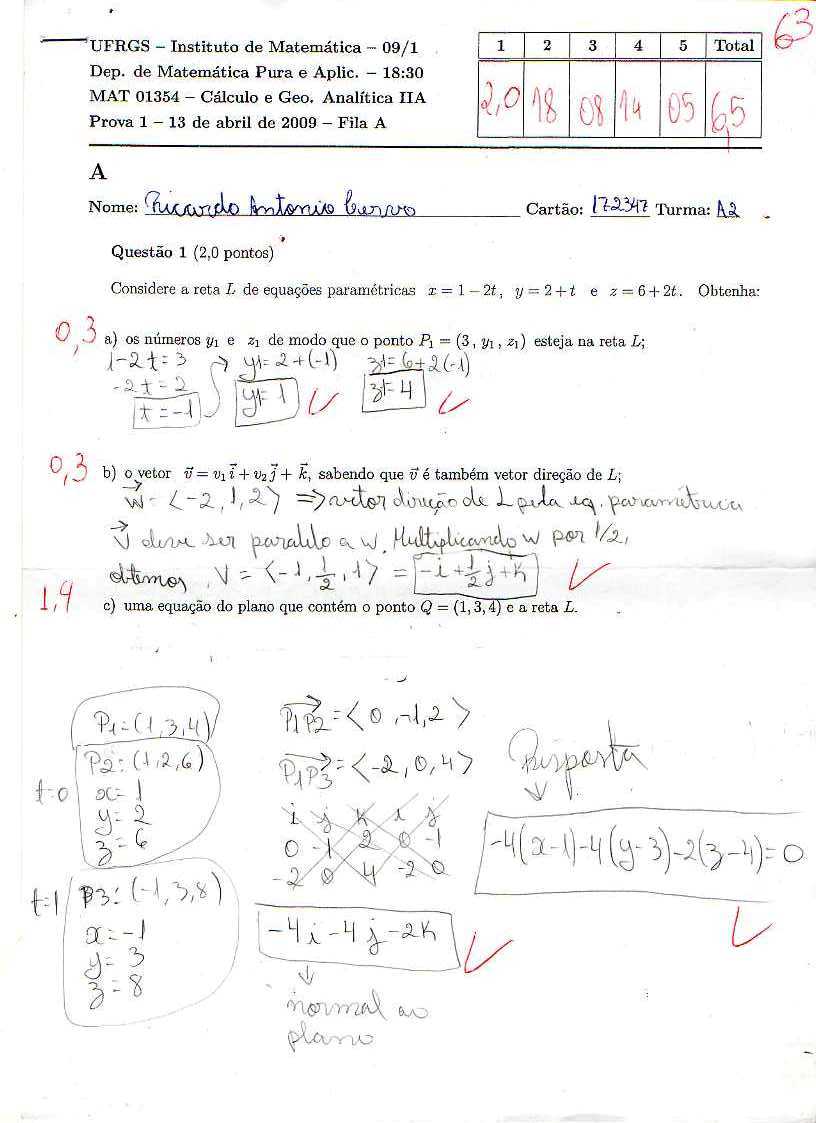 63
UFRGS – Instituto de Matemática – 09/1
Dep. de Matemática Pura e Aplic. – 18:30
MAT 01354 – Cálculo e Geo. Analítica IIA
Prova 1 – 13 de abril de 2009 – Fila A
1 2 3 4 5 Total
2,0 18 08 14 05 6,5
A
Nome: Ricardo Antonio Cervo Cartão: 172347 Turma: A2
Questão 1 (2,0 pontos)
Considere a reta L de equações paramétricas x = 1 − 2t, y = 2 + t e z = 6 + 2t. Obtenha:
0,3 a) os números y₁ e z₁ de modo que o ponto P₁ = (3, y₁, z₁) esteja na reta L;
1-2t=3 → y1=2+(-1) z1=6+2(-1)
-2t=2 y1=1 z1=4
t=-1
0,3 b) o vetor v⃗ = v₁ i⃗ + v₂ j⃗ + k⃗, sabendo que v⃗ é também vetor direção de L;
w⃗ = <-2, 1, 2> ⇒ vetor direção de L pela eq. paramétrica
v⃗ deve ser paralelo a w. Multiplicando w por 1/2,
obtemos, V = <-1, 1/2, 1> = -i+1/2j+k
1,4 c) uma equação do plano que contém o ponto Q = (1, 3, 4) e a reta L.
P1=(1,3,4)
P2:(1,2,6)
t=0 x=1
y=2
z=6
t=1 P3:(-1,3,8)
x=-1
y=3
z=8
P1P2=<0,-1,2>
P1P3=<-2,0,4>
i j k i j
0 -1 2 0 -1
-2 0 4 -2 0
-4i-4j-2k
↓
normal ao
plano
Resposta
↓
-4(x-1)-4(y-3)-2(z-4)=0